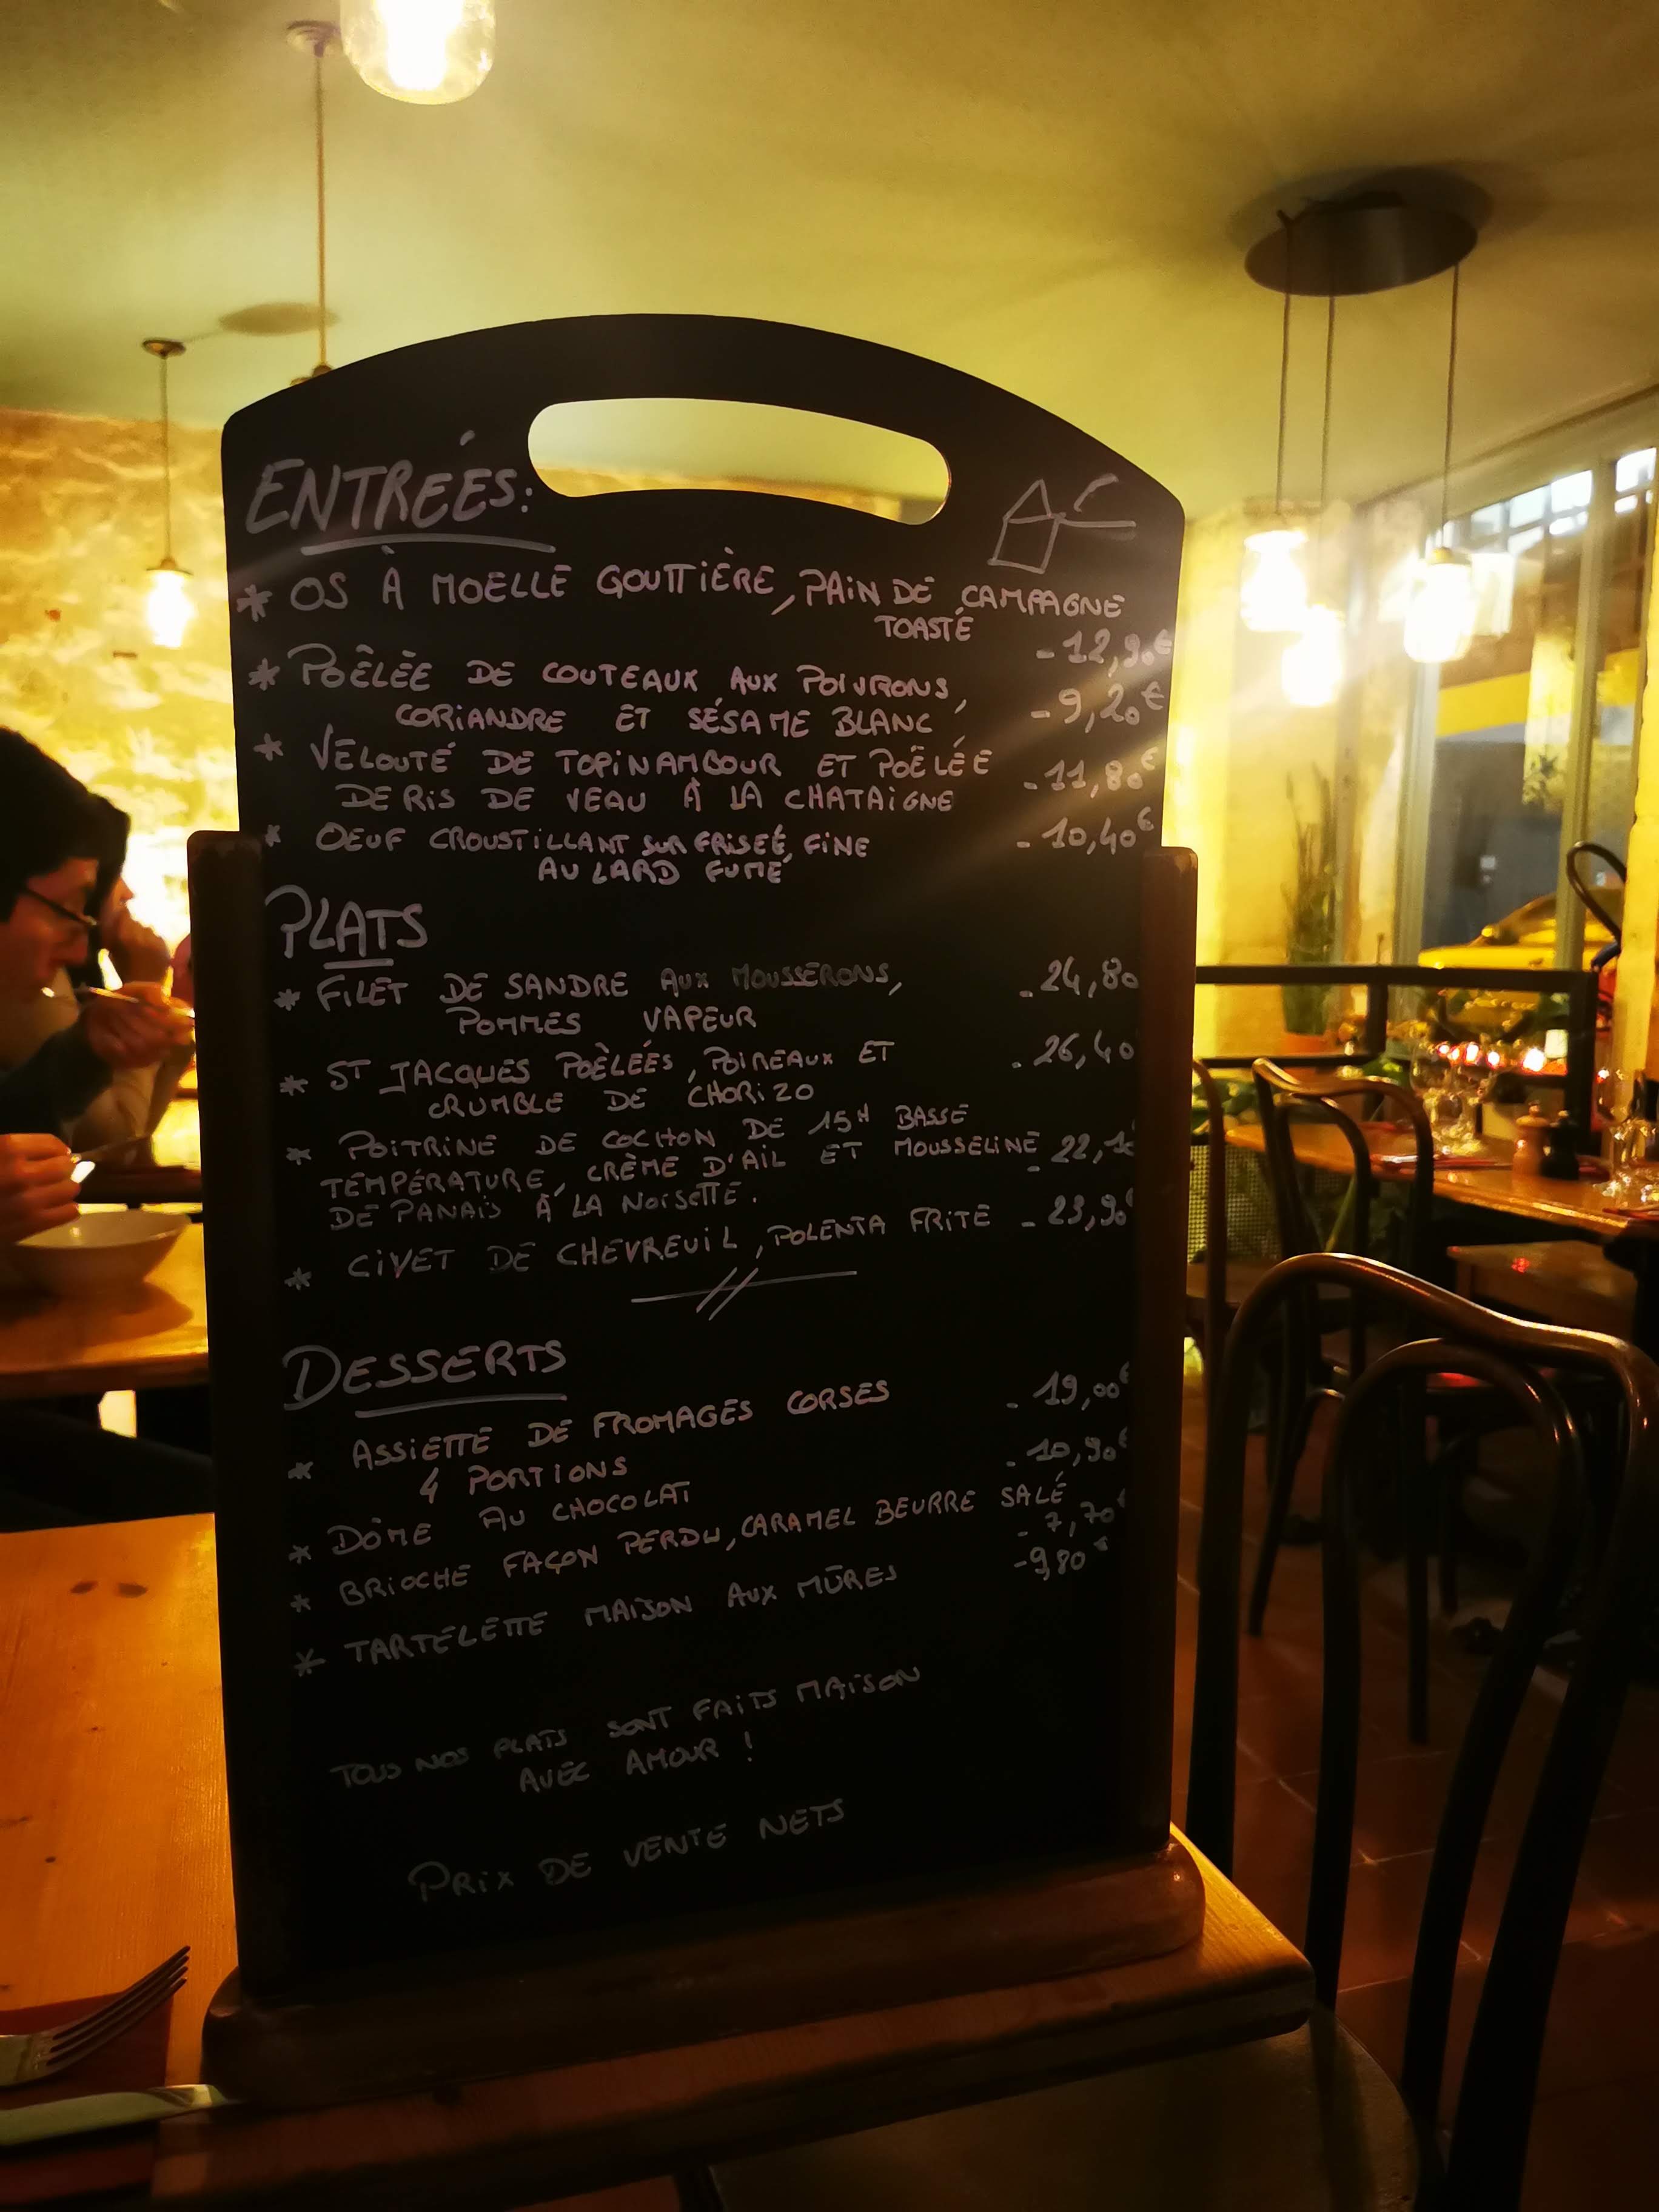 ENTREÉS:
* OS À MOELLE GOUTTIÈRE, PAIN DE CAMPAGNE
TOASTÉ - 12,90€
* POÊLÈE DE COUTEAUX AUX POIVRONS,
CORIANDRE ET SÉSAME BLANC - 9,20€
* VELOUTÉ DE TOPINAMBOUR ET POÊLÉE
DE RIS DE VEAU À LA CHATAIGNE - 11,80€
* OEUF CROUSTILLANT SUR FRISEÉ FINE - 10,40€
AU LARD FUMÉ
PLATS
* FILET DE SANDRE AUX MOUSSERONS, - 24,80
POMMES VAPEUR
* ST JACQUES POÈLEÉS, POIREAUX ET - 26,40
CRUMBLE DE CHORIZO
* POITRINE DE COCHON DE 15H BASSE
TEMPÉRATURE, CRÈME D'AIL ET MOUSSELINE - 22,
DE PANAIS À LA NOISETTE.
* CIVET DE CHEVREUIL, POLENTA FRITE - 23,90€
DESSERTS
* ASSIETTE DE FROMAGES CORSES - 19,00€
4 PORTIONS
* DÔME AU CHOCOLAT - 10,90€
* BRIOCHE FAÇON PERDU, CARAMEL BEURRE SALÉ
- 7,70€
* TARTELETTE MAISON AUX MÛRES - 9,80€
TOUS NOS PLATS SONT FAITS MAISON
AVEC AMOUR !
PRIX DE VENTE NETS